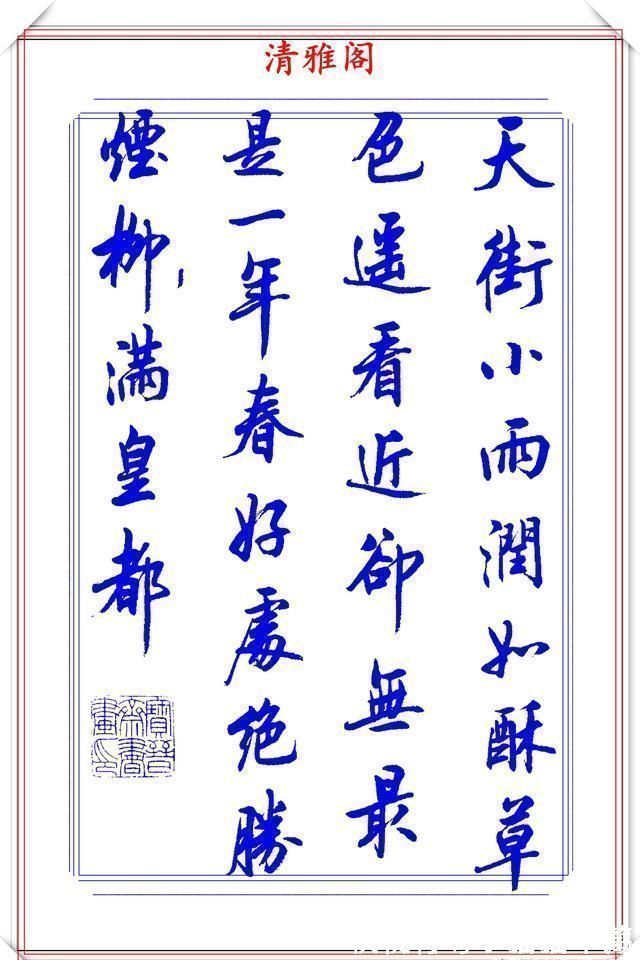 清雅阁
天街小雨潤如酥草
色遥看近卻無最
是一年春好處絶勝
煙柳满皇都